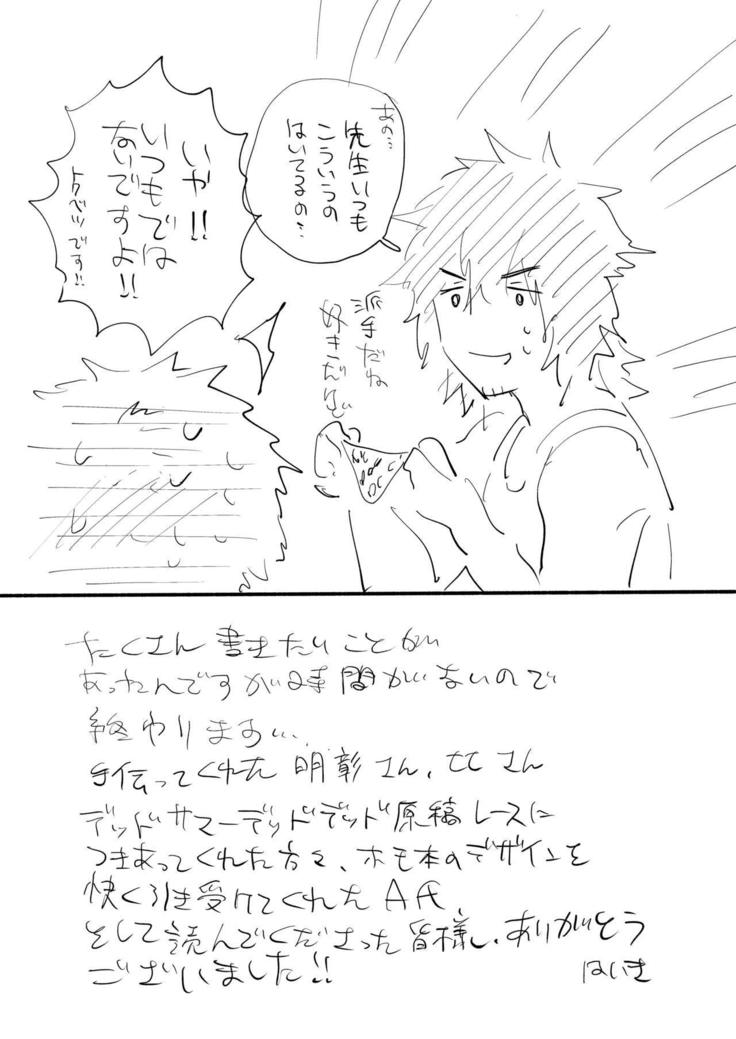 あの…
先生いつも
こういうの
はいてるの…
いや!!
いつもでは
ないですよ!!
トクベツです!!
派手だね
好きだけど
たくさん書きたいことが
あったんですが時間がないので
終わります…
手伝ってくれた明彰さん、ヒヒさん
デッドサマーデッドデッド原稿レースに
つきあってくれた方々、ホモ本のデザインを
快く引き受けてくれたA氏
そして読んでくださった皆様し、ありがとう
ございました!!
はいき